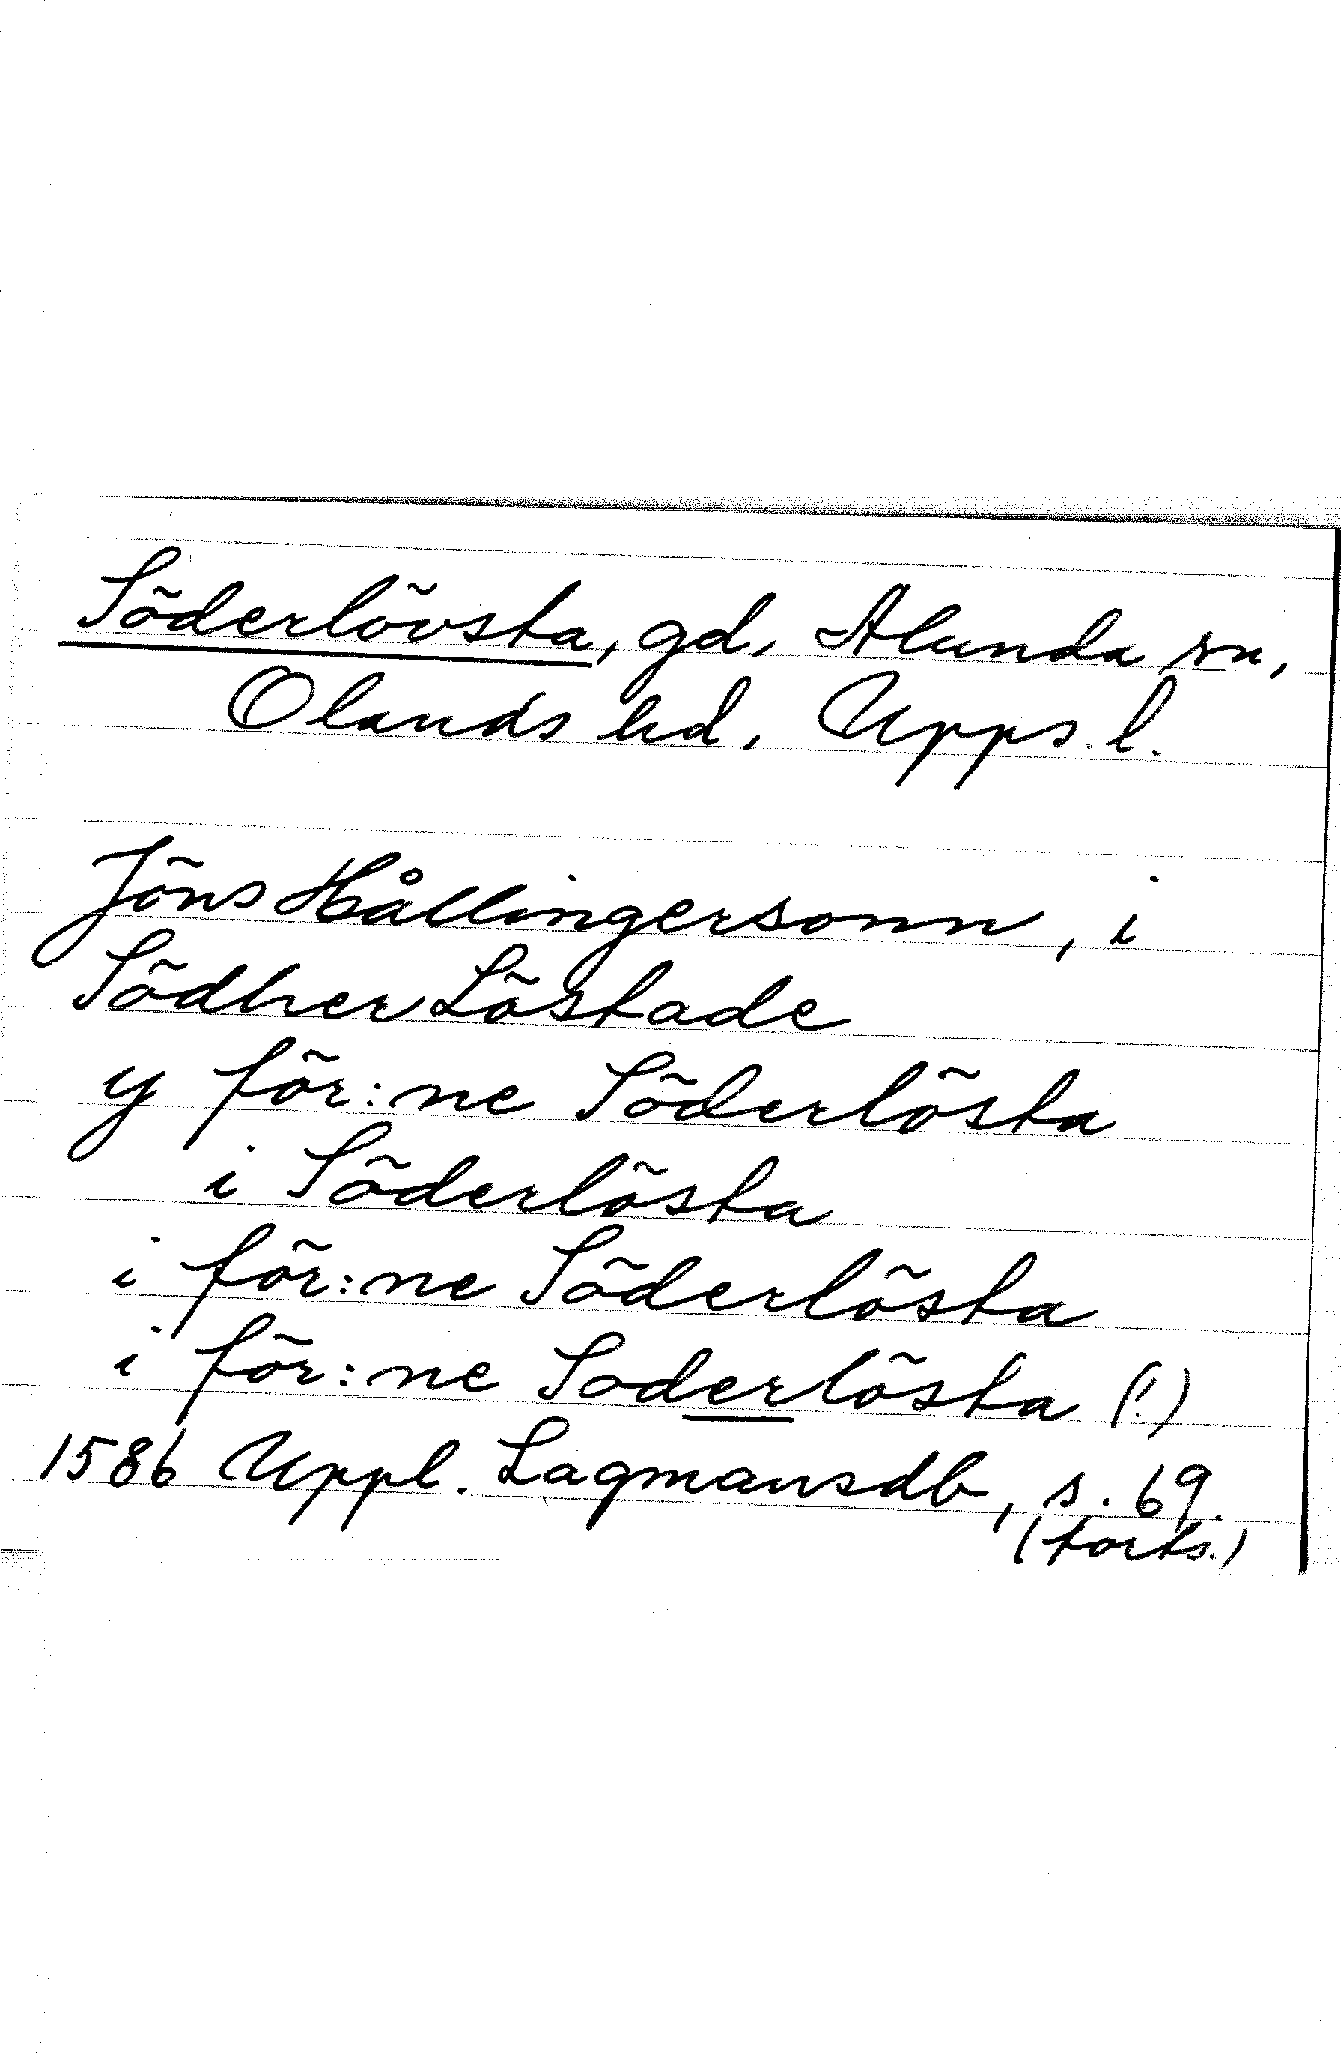 Söderlövsta, gd, Alunda sn,
Olands hd, Upps. l.
Jöns Hållingersonn, i
Södher Löstade
y för:ne Söderlösta
i Söderlösta
i för:ne Söderlösta
i för:ne Soderlösta (!)
1586 Uppl. Lagmansdb, s. 69.
(forts.)